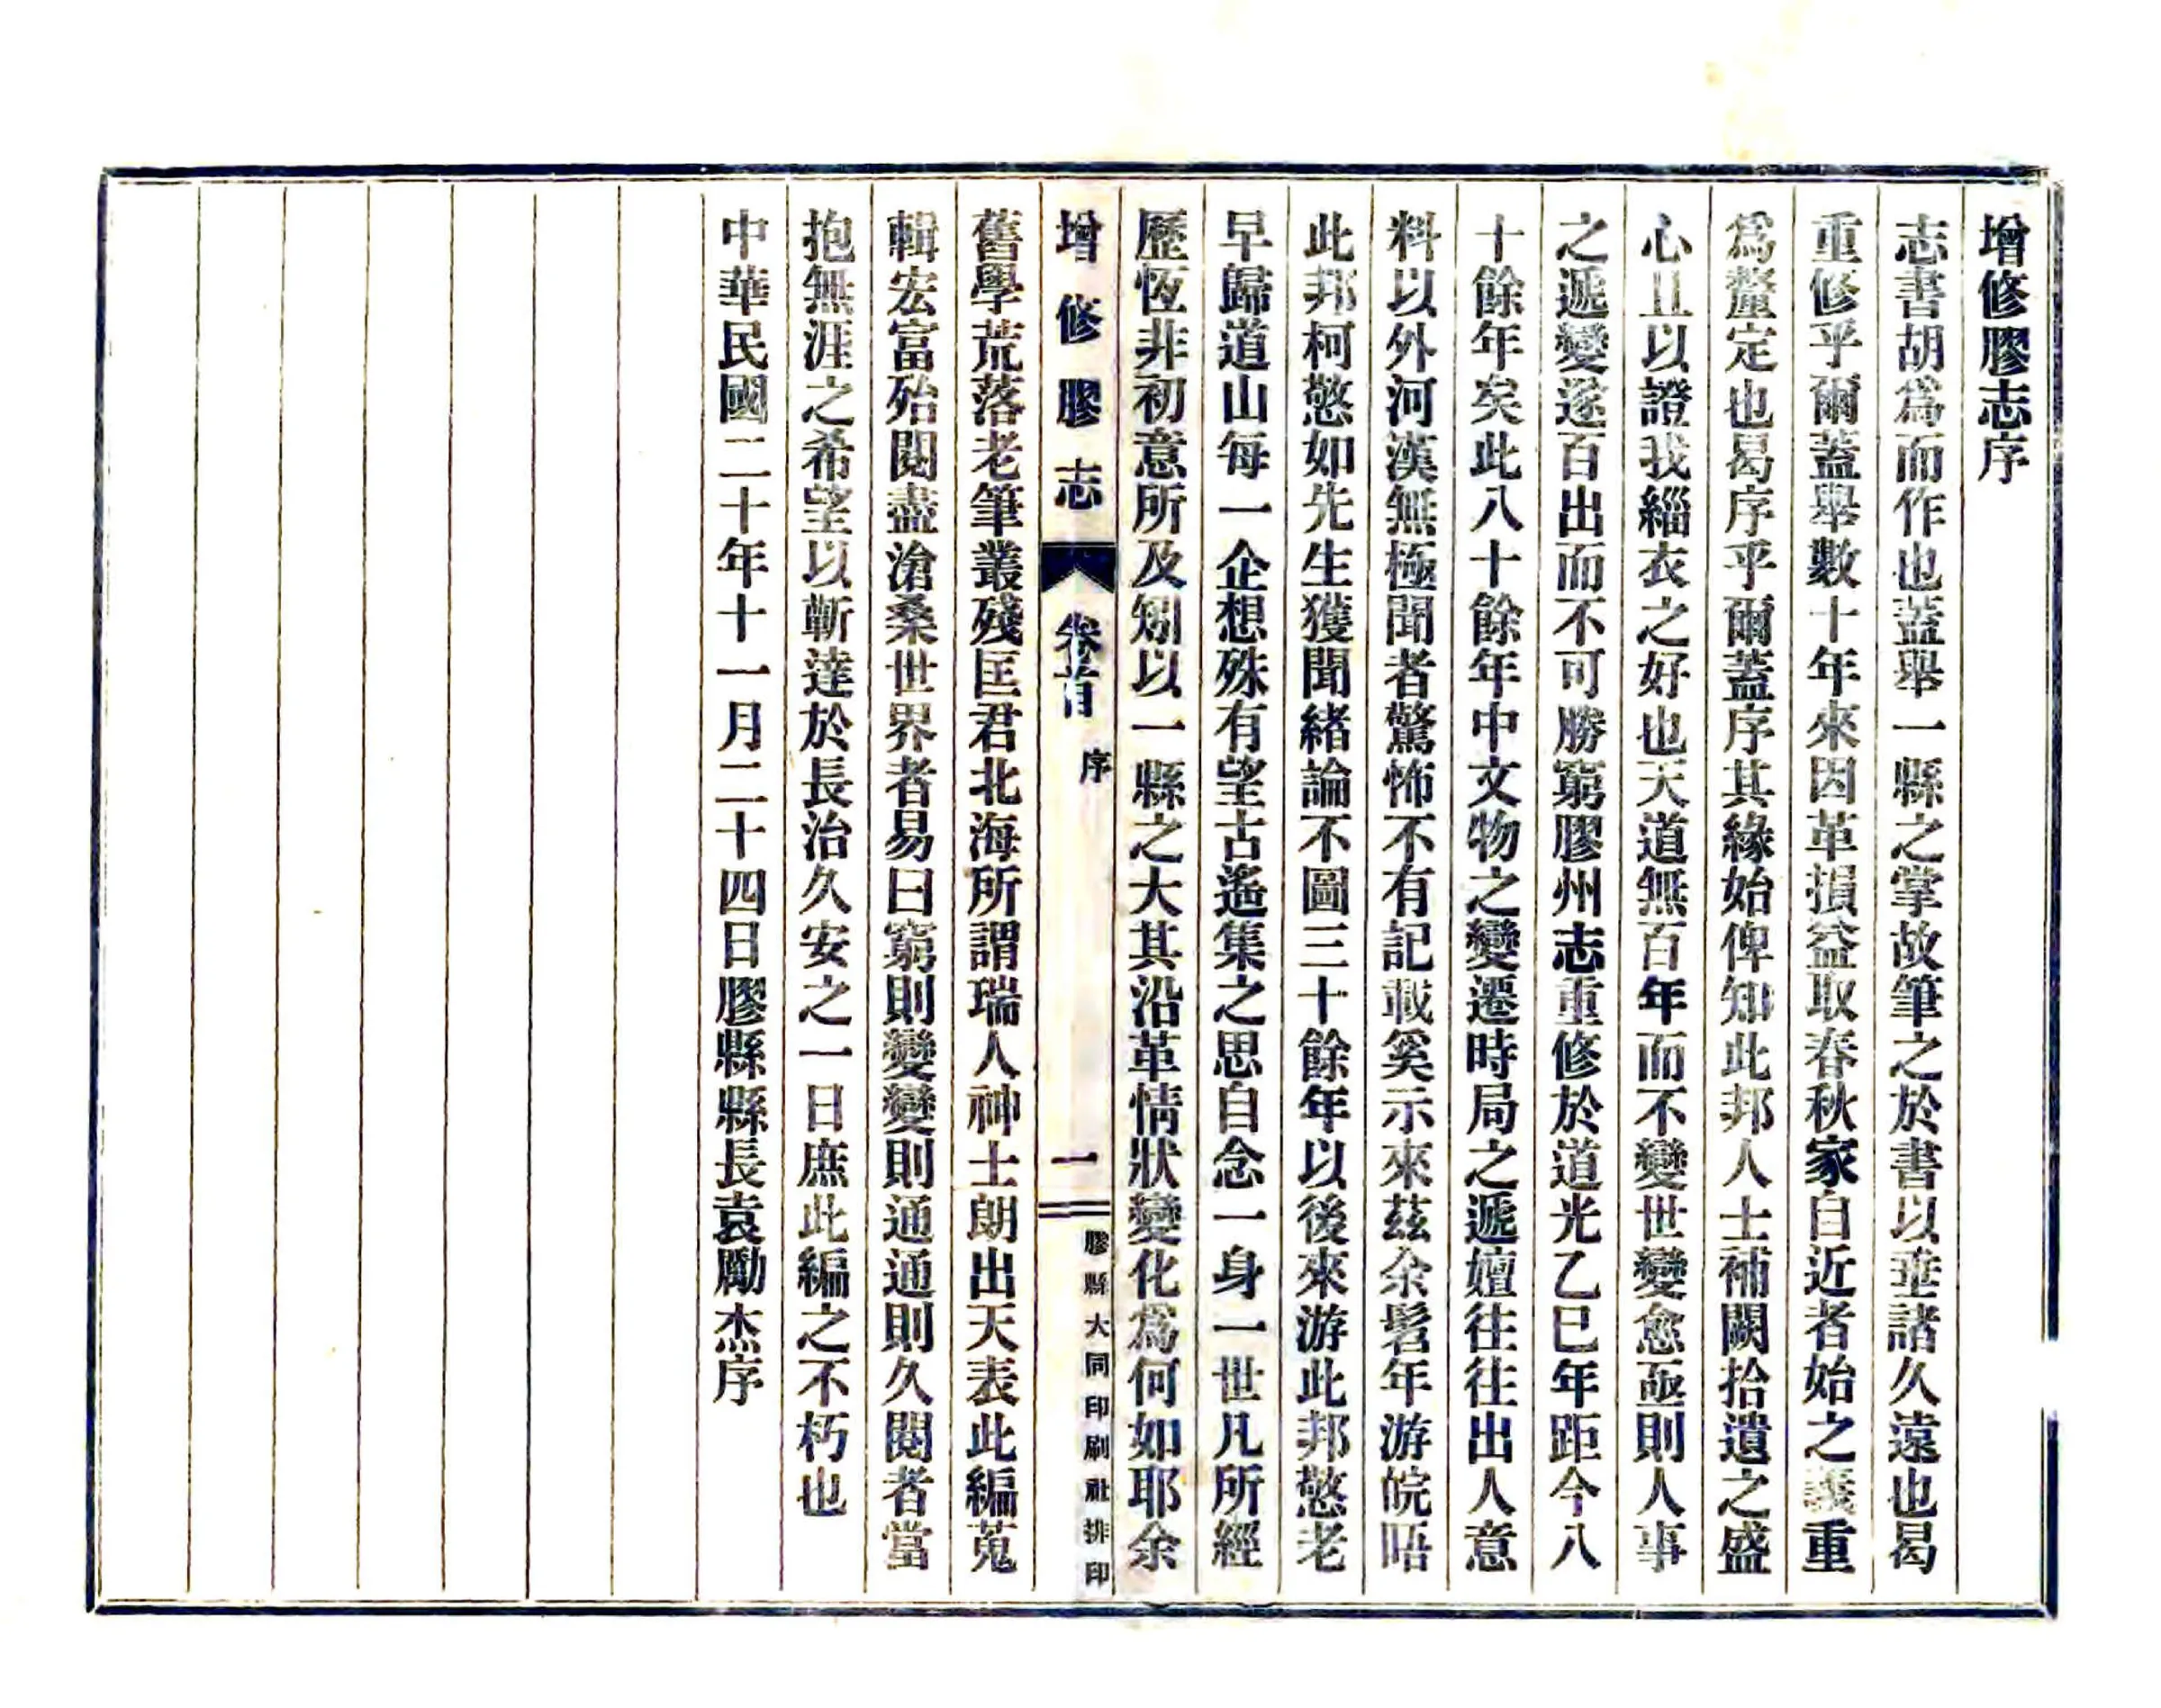 增修膠志序
志書胡爲而作也蓋舉一縣之掌故筆之於書以垂諸久遠也曷
重修乎爾蓋舉數十年來因革損益取春秋家自近者始之義重
爲釐定也曷序乎爾蓋序其緣始俾知此邦人士補闕拾遺之盛
心且以證我緇衣之好也天道無百年而不變世變愈亟則人事
之遞變遂百出而不可勝窮膠州志重修於道光乙巳年距今八
十餘年矣此八十餘年中文物之變遷時局之遞嬗往往出人意
料以外河漢無極聞者驚怖不有記載奚示來茲余髫年游皖晤
此邦柯憗如先生獲聞緒論不圖三十餘年以後來游此邦憗老
早歸道山每一企想殊有望古遙集之思自念一身一世凡所經
歷恆非初意所及矧以一縣之大其沿革情狀變化爲何如耶余
增修膠志 卷首 序 一 膠縣大同印刷社排印
舊學荒落老筆叢殘匡君北海所謂瑞人神士朗出天表此編蒐
輯宏富殆閱盡滄桑世界者易曰窮則變變則通通則久閱者當
抱無涯之希望以蘄達於長治久安之一日庶此編之不朽也
中華民國二十年十一月二十四日膠縣縣長袁勵杰序